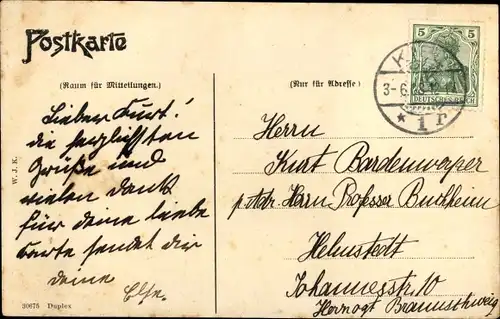 Postkarte
(Raum für Mitteilungen.)
(Nur für Adresse)
5 5
DEUTSCHES REICH
3-6
* 1 r
Lieber Kurt!
die herzlichsten
Grüße und
vielen Dank
für deine liebe
Karte sendet dir
deine
Else.
Herrn
Kurt Bardenwerper
p. Adr. Herrn Professor Buchheim
Helmstedt
Johannesstr. 10
Herzogt Braunschweig
W. J. K.
30675 Duplex